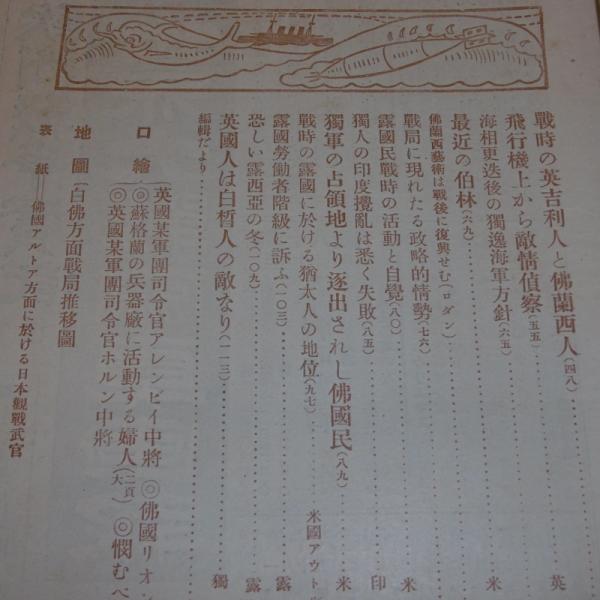 戰時の英吉利人と佛蘭西人(四八)‥‥‥英
飛行機上から敵情偵察(五五)
海相更迭後の獨逸海軍方針(六五)‥‥‥米
最近の伯林(六九)
佛蘭西藝術は戰後に復興せむ(ロダン)
戰局に現れたる政略的情勢(七六)‥‥‥米
露國民戰時の活動と自覺(八〇)
獨人の印度擾亂は悉く失敗(八五)‥‥‥印
獨軍の占領地より逐出されし佛國民(八九)‥‥‥米
戰時の露國に於ける猶太人の地位(九七)‥‥‥米國アウト
露國勞働者階級に訴ふ(一〇三)‥‥‥露
恐しい露西亞の冬(一〇九)‥‥‥露
英國人は白皙人の敵なり(一一三)‥‥‥獨
編輯だより
口繪
英國某軍團司令官アレンビイ中將 ◎佛國リオン
◎蘇格蘭の兵器廠に活動する婦人(二頁大) ◎憫むべ
◎英國某軍團司令官ホルン中將
地圖〔白佛方面戰局推移圖
表紙══佛國アルトア方面に於ける日本觀戰武官